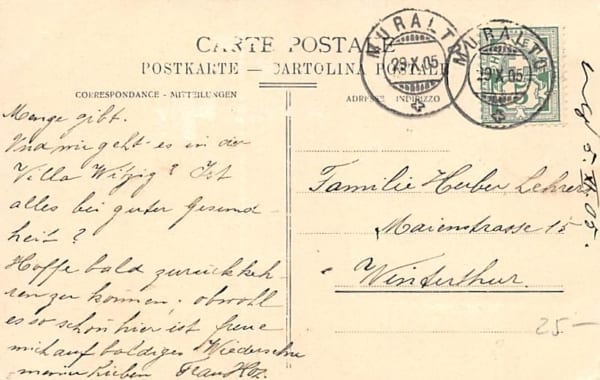 CARTE POSTALE
POSTKARTE — CARTOLINA POSTALE
CORRESPONDANCE - MITTEILUNGEN
ADRESSE INDIRIZZO
MURALTO
29.X.05
MURALTO
29.X.05
Menge gibt.
Und wie geht es in der
Villa Witzig? Ist
alles bei guter Gesund-
heit?
Hoffe bald zurückkeh-
ren zu können, obwohl
es so schön hier ist freue
mich auf baldiges Wiedersehn
meine Lieben Frau Hoz.
Familie Huber, Lehrer
Maienstrasse 15
Winterthur.
5. XI. 05.
25 –